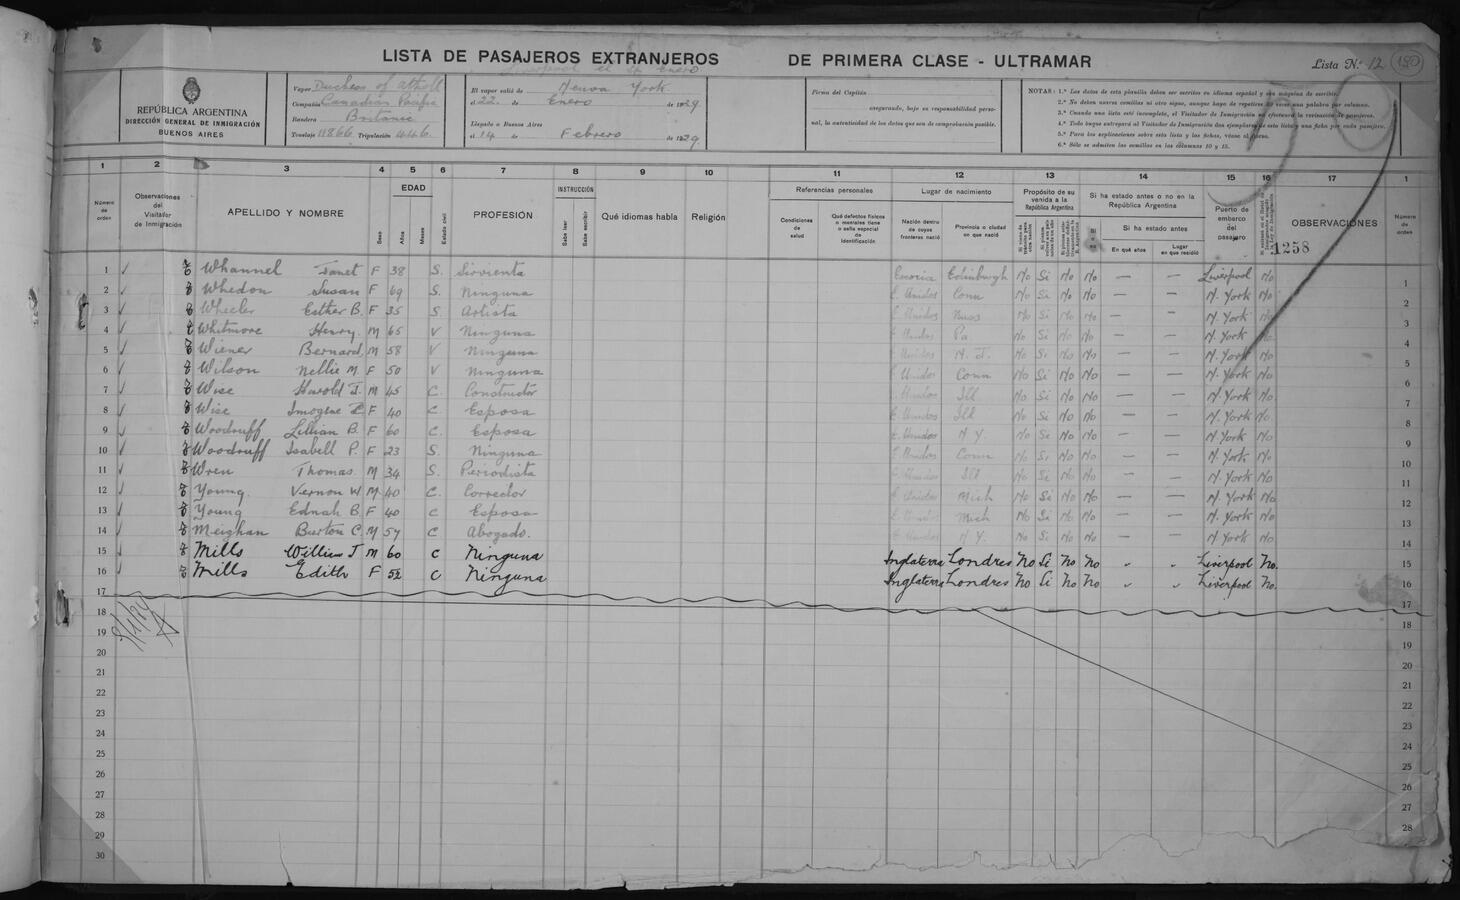 LISTA DE PASAJEROS EXTRANJEROS DE PRIMERA CLASE - ULTRAMAR
Lista N.º 12 150
Liverpool el 4 Enero
REPÚBLICA ARGENTINA
DIRECCIÓN GENERAL DE INMIGRACIÓN
BUENOS AIRES
Vapor Duchess of Atholl
Compañía Canadian Pacific
Bandera Britanic
Tonelaje 11866 Tripulación 446.
El vapor salió de Neuva York
el 22. de Enero de 1929
Llegado a Buenos Aires
el 14 de Febrero de 1929.
Firma del Capitán
asegurando, bajo su responsabilidad perso-
nal, la autenticidad de los datos que sea de comprobación posible.
NOTAS: 1.ª Los datos de esta planilla deben ser escritos en idioma español y con máquina de escribir.
2.ª No deben usarse comillas ni otro signo, aunque haya de repetirse 20 veces una palabra por columna.
3.ª Cuando una lista esté incompleta, el Visitador de Inmigración no efectuará la revisación de pasajeros.
4.ª Todo buque entregará al Visitador de Inmigración dos ejemplares de esta lista y una ficha por cada pasajero.
5.ª Para las explicaciones sobre esta lista y las fichas, véase al dorso.
6.ª Sólo se admiten las comillas en las columnas 10 y 15.
1 2 3 4 5 6 7 8 9 10 11 12 13 14 15 16 17 1
Número de orden
Observaciones del Visitador de Inmigración
APELLIDO Y NOMBRE
Sexo
EDAD
Años
Meses
Estado civil
PROFESIÓN
INSTRUCCIÓN
Sabe leer
Sabe escribir
Qué idiomas habla
Religión
Referencias personales
Condiciones de salud
Qué defectos físicos o mentales tiene o seña especial de identificación
Lugar de nacimiento
Nación dentro de cuyas fronteras nació
Provincia o ciudad en que nació
Propósito de su venida a la República Argentina
Si ha estado antes o no en la República Argentina
Si ha estado antes
En qué años
Lugar en que residió
Puerto de embarco del pasajero
OBSERVACIONES
Número de orden
1258
1 Whannel Janet F 38 S. Sirvienta Escocia Edinburgh No Si No No — — Liverpool No 1
2 Whedon Susan F 69 S. Ninguna E. Unidos Conn No Si No No — — N. York No 2
3 Wheeler Esther B. F 35 S. Artista E. Unidos Mass No Si No No — — N. York No 3
4 Whitmore Henry. M 65 V Ninguna E. Unidos Pa No Si No No — — N. York No 4
5 Wiener Bernard. M 58 V Ninguna E. Unidos N. J. No Si No No — — N. York No 5
6 Wilson Nellie M F 50 V Ninguna E. Unidos Conn No Si No No — — N. York No 6
7 Wise Harold J. M 45 C. Constructor E. Unidos Ill No Si No No — — N. York No 7
8 Wise Imogene F 40 C. Esposa E. Unidos Ill No Si No No — — N. York No 8
9 Woodruff Lillian B. F 60 C. Esposa E. Unidos N Y. No Si No No — — N. York No 9
10 Woodruff Isabell P. F 23 S. Ninguna E. Unidos Conn No Si No No — — N. York No 10
11 Wren Thomas. M 34 S. Periodista E. Unidos Ill No Si No No — — N. York No 11
12 Young. Vernon W M. 40 C. Corredor E. Unidos Mich No Si No No — — N. York No 12
13 Young Ednah B. F 40 C Esposa E. Unidos Mich No Si No No — — N. York No 13
14 Meighan Burton C. M 57 C Abogado. E. Unidos N Y. No Si No No — — N. York No 14
15 Mills William J. M 60 C Ninguna Inglaterra Londres No Si No No " " Liverpool No. 15
16 Mills Edith F 52 C Ninguna Inglaterra Londres No Si No No " " Liverpool No. 16
17 17
18 18
19 19
20 20
21 21
22 21
23 22
24 23
25 24
26 25
27 26
28 27
29 28
30